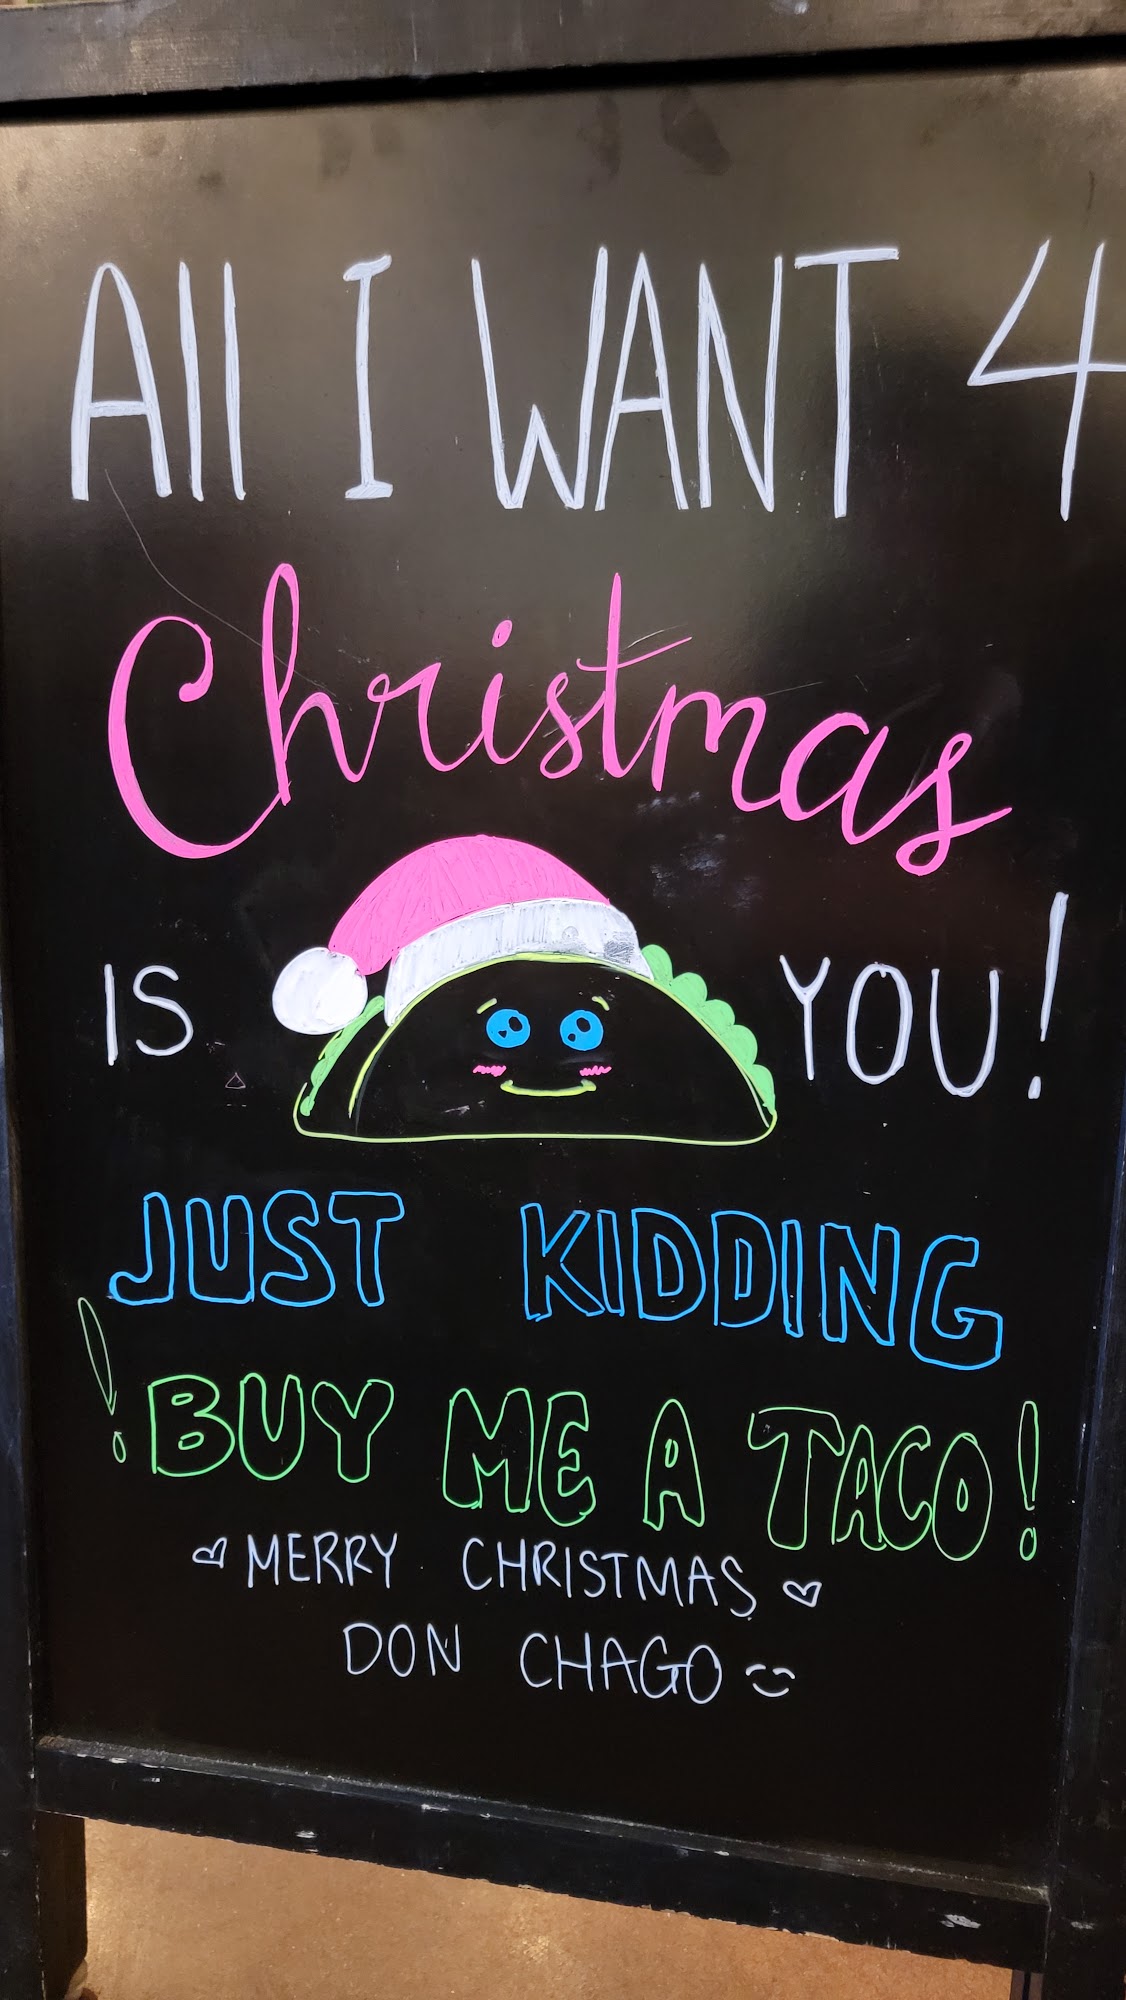 All I WANT 4
Christmas
IS YOU!
JUST KIDDING
! BUY ME A TACO!
MERRY CHRISTMAS
DON CHAGO